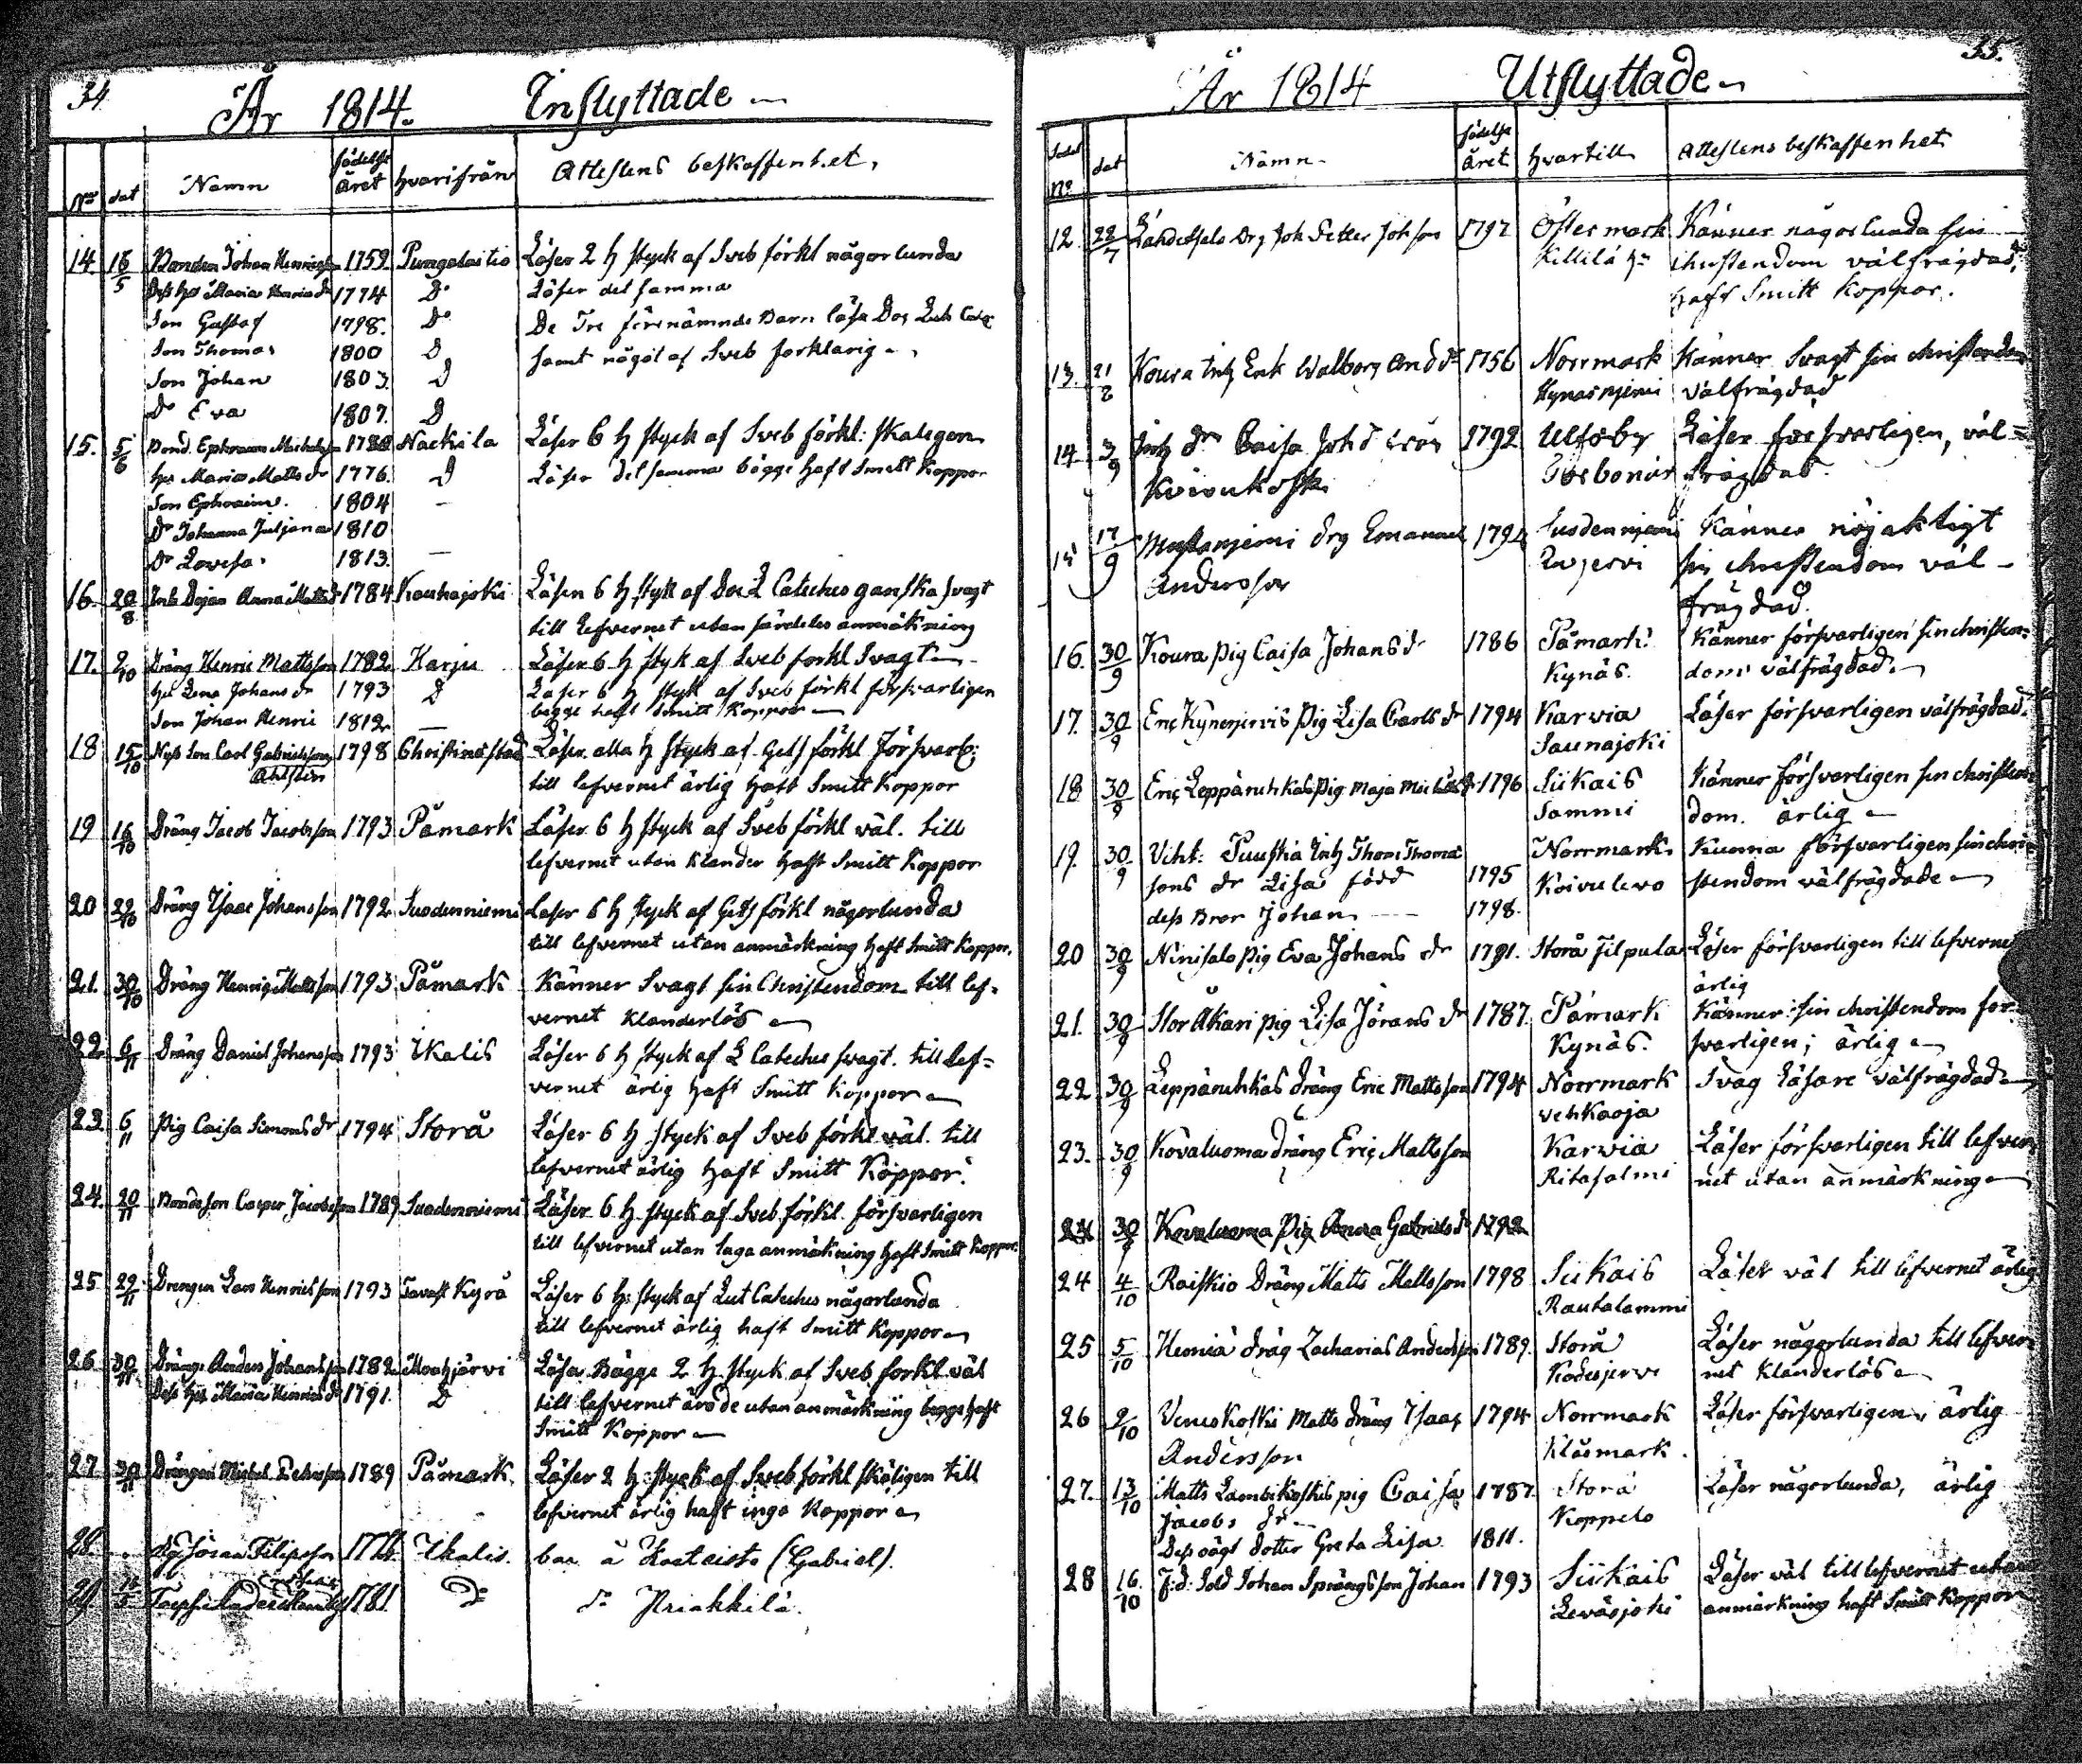 34
År 1814. Inflyttade
No dat Namn födelse året hvarifrån Attestens beskaffenhet.
14 16/5 Bonden Johan Henricsson 1759. Pungalaitio Läser 2 h styck af Sveb förkl någorlunda
Dess hu Maria 1774 Do Läser det samma
Son Gustaf 1798. Do De Tre förenämnde Barn läsa Dos Luth Catg
Son Thomas 1800 D samt något af Sveb forklarig
Son Johan 1803. D
Dr Eva 1807. D
15. 5/6 Bond. Ephraim Nackila Läser 6 h styck af Sveb förkl: skaligen
hu Maria Matts dr 1776. D Läser det samma bägge haft Smitt Koppor
Son Ephraim. 1804 —
Dr Johanna Juljana 1810
Dr Lovisa. 1813. —
16. 20/8 Anna Matts dr 1784 Kauhajoki Läser 6 h styk af Doc L Cateches ganska svagt
till Lefvernet utan särdeles anmäkning
17. 2/10 Dräng Henric Mattsson 1782 Karju Läser 6 h styk af Sveb forkl Svagt
hu Lena Johans dr 1793 D Läser 6 h styk af Sveb förkl försvarligen
Son Johan Henric 1812. — begge haft Smitt Koppor
18 15/10 Nyb Son Carl Gabrielsson 1798 Christinestad Läser alla h styck af Gets förkl Försvarl:
Ahlsten till lefvernet ärlig haft Smitt Koppor
19 16/10 Dräng Jacob Jacobsson 1793. Påmark Läser 6 h styck af Sveb förkl väl. till
lefvernet utan klander haft Smitt Koppor
20 22/10 Dräng Isaac Johansson 1792. Suodenniemi Läser 6 h styck af Gets förkl någorlunda
till lefvernet utan anmärkning haft Smitt Koppor.
21. 30/10 Dräng Henric Mattsson 1793 Påmark Känner Svagt sin Christendom till lef-
vernet klanderlös
22. 6/11 Dräng Daniel Johansson 1793 Ikalis Läser 6 h styck af L Cateches svagt. till Lef-
vernet ärlig haft Smitt Koppor
23. 6/11 Pig Caisa Simons dr 1794 Storå Läser 6 h styck af Sveb förkl väl. till
lefvernet ärlig haft Smitt Koppor.
24. 20/11 Bondeson Casper Jacobsson 1789 Suodenniemi Läser 6 h styck af Sveb förkl. försvarligen
till lefvernet utan laga anmäkning haft Smitt Koppor
25 22/11 Drengen Lars Henricsson 1793 Tavast Kyrö Läser 6 h: styck af Lut Cateches någorlunda
till lefvernet ärlig haft Smitt Koppor
26 30/11 Dränge Anders Johansson 1782 Mouhijärvi Läsa Bägge 2 h styck af Sveb forkl väl
Dess hu Maria Henrics dr 1791. D till lefvernet utan anmärkning begge haft
Smitt Koppor
27 30/11 Drängen Michel 1789 Påmark. Läser 2 h: styck af Sveb förkl skäligen till
lefvernet ärlig haft inga Koppor
28. Filipsson Ikalis. (Gabriel).
29 1781. Do
35.
År 1814 Utflyttade
No dat Namn. födelse Året hvartill Attestens beskaffenhet
12. 22/7 Lähdetsalo Drg Joh Petter Johsson 1797 Östermark Känner någorlunda sin
Killilä christendom välfrägdad,
haft Smitt Koppor.
13. 21/8 Koura Inh Enk Walborg And dr 1756 Norrmark Känner Svagt sin christendom
välfrägdad
14 3/9 Inh dr Caisa Joh d 1792 Ulfsby Läser försvarligen, väl-
frägdad.
15 17/9 Mustanjemi drg Emanuel 1794 Känner nöjaktigt
Andersson sin christendom väl-
frägdad.
16. 30/9 Koura pig Caisa Johans dr 1786 Påmark: Känner försvarligen sin christen-
Kynäs. dom välfrägdad.
17. 30/9 Eric Kynesjervis Pig Lisa Carls dr 1794 Karvia Läser försvarligen välfrägdad.
Saunajoki
18 30/9 Eric Leppäruhkas Pig Maja 1796 Siikais Känner försvarligen sin christen-
Sammi dom. ärlig
19. 30/9 Inh Thom Thoma Norrmark. Kunna försvarligen sin chri-
sons dr Lisa född 1795 Koivulevo stendom välfrägdade
dess Bror Johan 1798.
20 30/9 Ninisalo Pig Eva Johans dr 1791. Storå Jilpula Läser försvarligen till lefvernet
ärlig
21. 30/9 Stor Åkari pig Lisa Jörans dr 1787. Påmark Känner sin christendom för-
Kynäs. svarligen; ärlig
22 30/9 Leppäruhkas dräng Eric Mattsson 1794 Norrmark Svag Läsare välfrägdad
Vehkaoja
23. 30/9 Kovaluoma dräng Eric Mattsson Karvia Läser försvarligen till lefver
Ritasalmi net utan anmärkning
24 30/9 Kovaluoma Pig Anna Gabriels dr 1792
24 4/10 Raiskio Dräng Matts Mattsson 1798 Siikais Läser väl till lefvernet ärlig
Rautalammi
25 5/10 dräg Zacharias Andersson 1789. Storå Läser någorlunda till lefver
Kodesjervi net klanderlös
26 9/10 Matts dräng Isaac 1794 Norrmark Läser försvarligen, ärlig
Andersson Klåsmark.
27. 13/10 Matts Lambikoskis pig Caisa 1787. Storå Läser någorlunda, ärlig
Jacobs dr Koppelo
Dess oägt dotter Greta Lisa 1811.
28 16/10 F:d: Sold Johan Sprängs son Johan 1793 Siikais Läser väl till lefvernet utan
Leväsjoki anmärkning haft Smitt Koppor